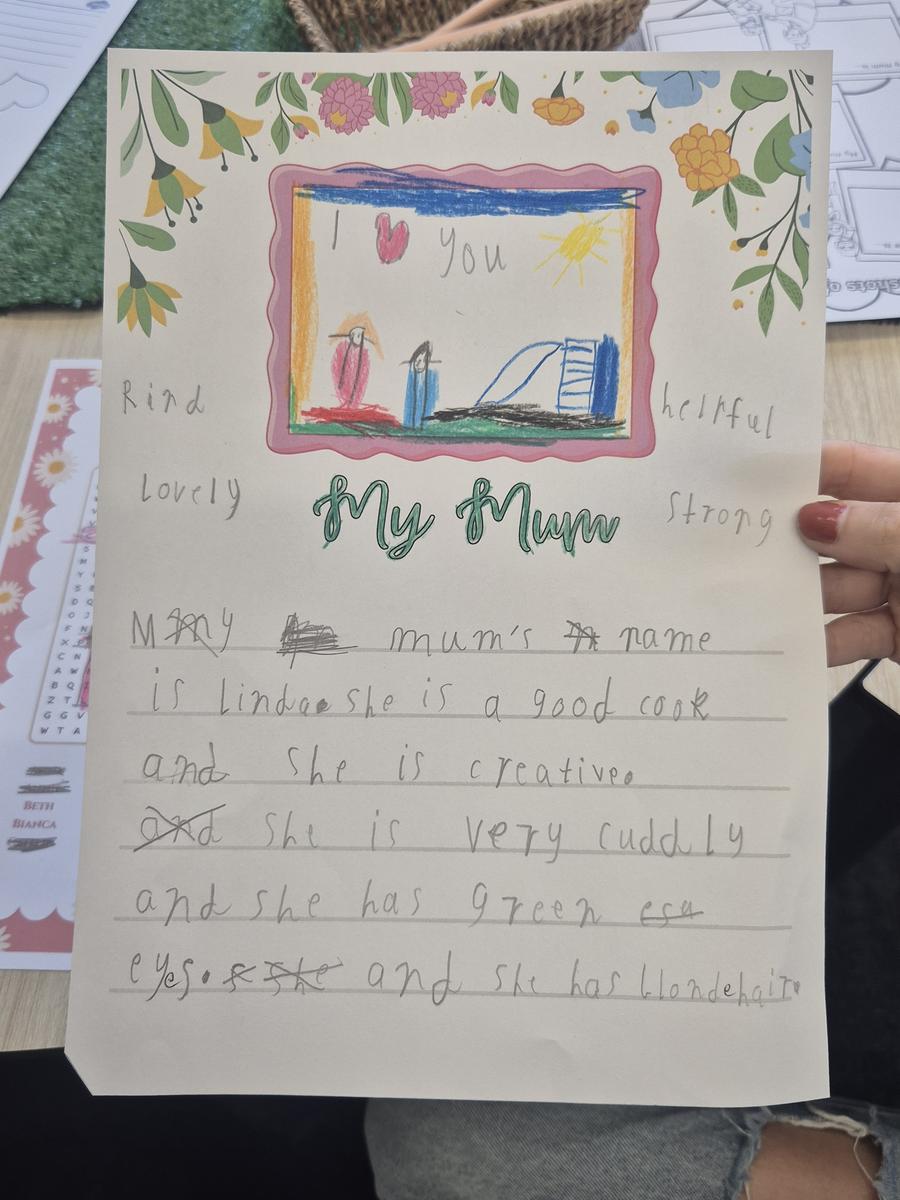 I ❤ you
Kind
helpful
Lovely
Strong
My Mum
My mum's name
is Linda. she is a good cook
and she is creative.
she is very cuddly
and she has green
eyes. and she has blonde hair.
BETH
BIANCA